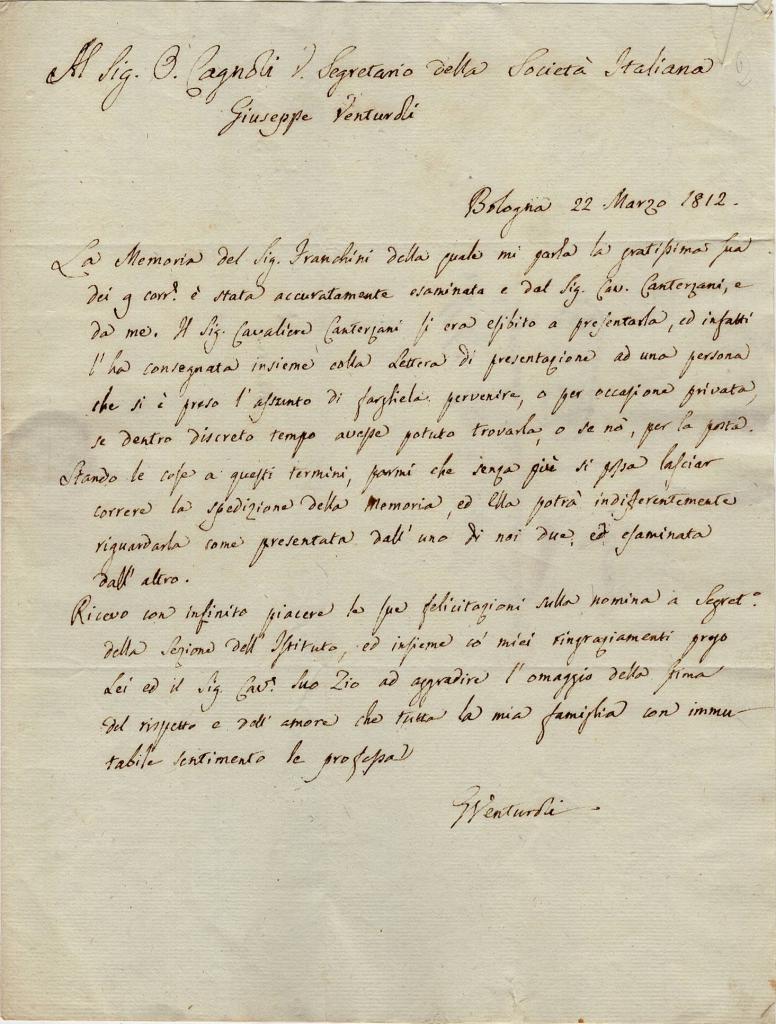 Al Sig. O. Cagnoli V. Segretario della Società Italiana
Giuseppe Venturoli
Bologna 22 Marzo 1812.
La Memoria del Sig. Franchini della quale mi parla la gratissima sua
dei 9 corr.e è stata accuratamente esaminata e dal Sig. Cav. Canterzani, e
da me. Il Sig. Cavaliere Canterzani si era esibito a presentarla, ed infatti
l'ha consegnata insieme colla Lettera di presentazione ad una persona
che si è preso l'assunto di fargliela pervenire, o per occasione privata,
se dentro discreto tempo avesse potuto trovarla, o se nò, per la posta.
Stando le cose a questi termini, parmi che senza più si possa lasciar
correre la spedizione della Memoria, ed Ella potrà indifferentemente
riguardarla come presentata dall'uno di noi due, ed esaminata
dall'altro.
Ricevo con infinito piacere le sue felicitazioni sulla nomina a Segret.o
della Sezione dell'Istituto, ed insieme co' miei ringraziamenti prego
Lei ed il Sig. Cav.e Suo Zio ad aggradire l'omaggio della stima
del rispetto e dell'amore che tutta la mia famiglia con immu-
tabile sentimento le professa
GVenturoli